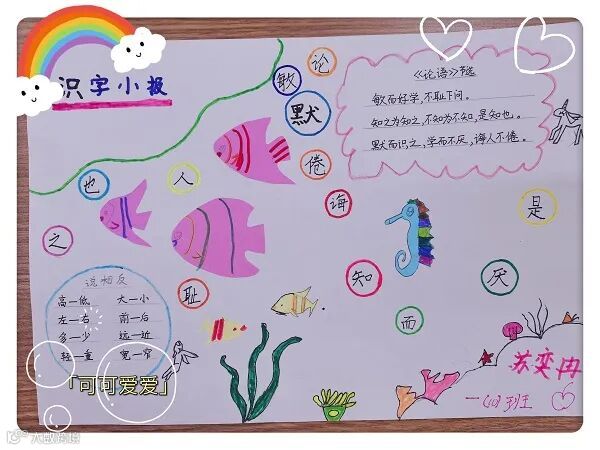 识字小报
论
敏
默
倦
诲
也
人
之
耻
知
而
厌
是
《论语》节选
敏而好学，不耻下问。
知之为知之，不知为不知，是知也。
默而识之，学而不厌，诲人不倦。
说相反
高—低 大—小
左—右 前—后
多—少 远—近
轻—重 宽—窄
「可可爱爱」
苏奕冉
一（10）班
大数跨境